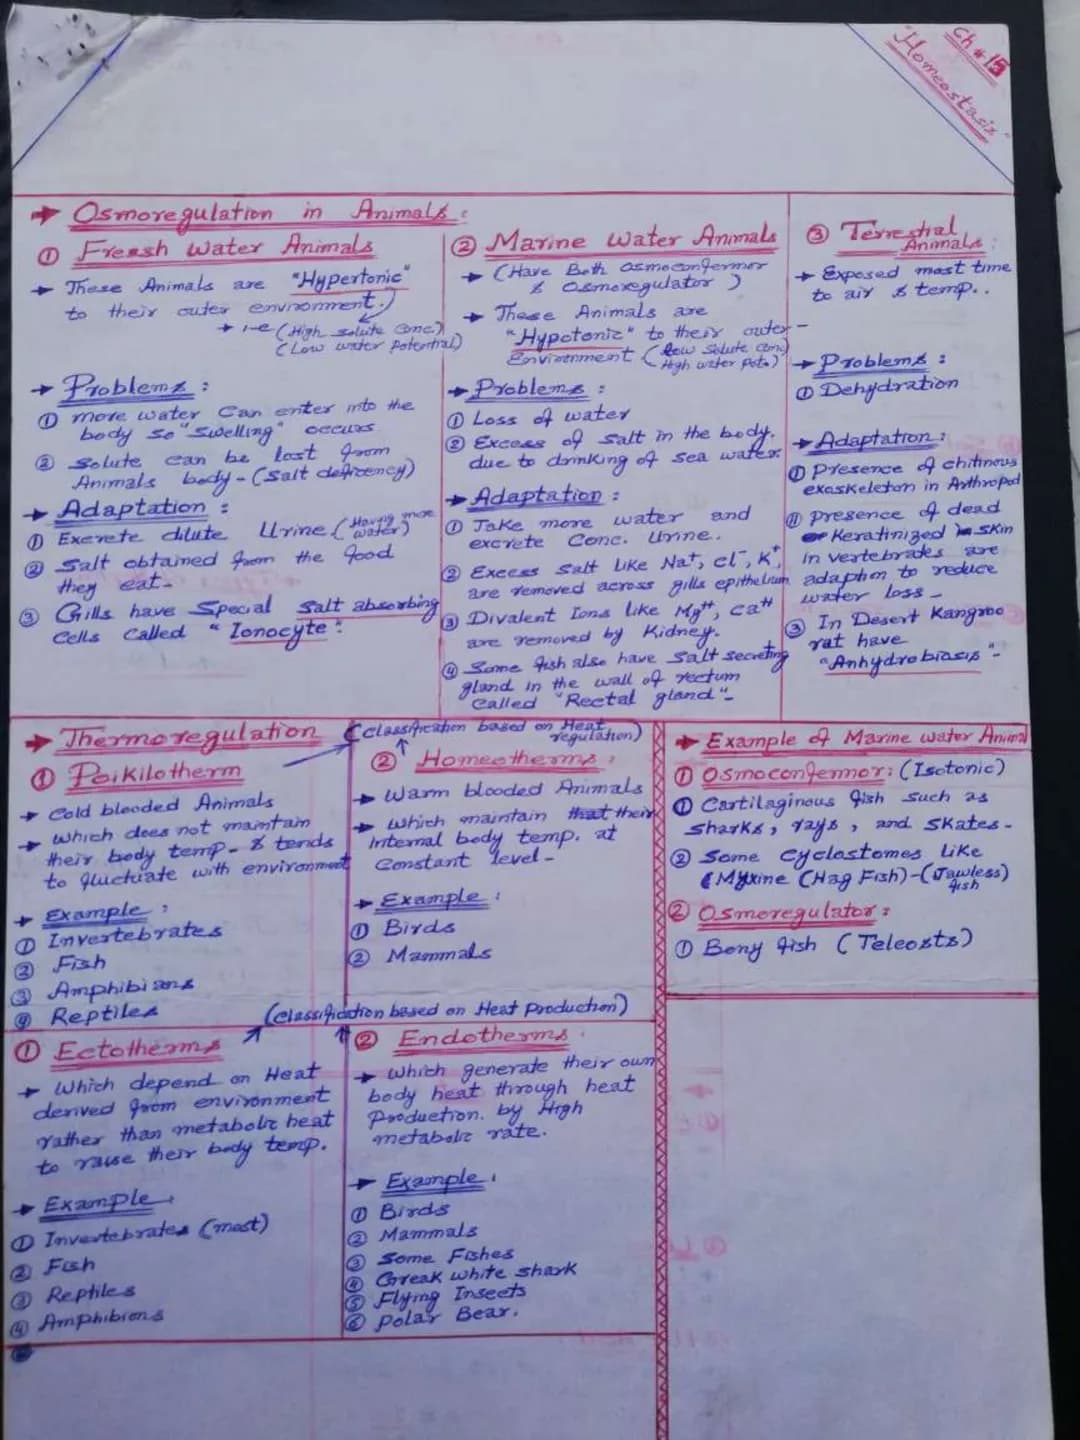 Ch # 15
"Homeostasis"
→ Osmoregulation in Animals:
① Fresh Water Animals
→ These Animals are "Hypertonic"
to their outer environment.)
→ i-e (High solute Conc.)
(Low water potential)
→ Problems :
① more water can enter into the
body so "Swelling" occurs
② Solute can be lost from
Animals body - (Salt deficency)
→ Adaptation :
① Excrete dilute Urine (Having more
water)
② Salt obtained from the food
they eat-
③ Gills have Special Salt absorbing
Cells Called "Ionocyte".
② Marine Water Animals
→ (Have Both Osmoconformor
& Osmoregulator)
→ These Animals are
"Hypotonic" to their outer-
Environment (low Solute conc
High water pot.)
→ Problems :
① Loss of water
② Excess of Salt in the body.
due to drinking of sea water.
→ Adaptation :
① Take more water and
excrete Conc. Urine.
② Excess Salt like Na⁺, cl⁻, K⁺,
are removed across gills epithelium
③ Divalent Ions like Mg⁺⁺, ca⁺⁺
are removed by Kidney.
④ Some fish also have Salt secreting
gland in the wall of rectum
Called "Rectal gland"-
③ Terrestrial
Animals :
→ Exposed most time
to air & temp..
→ Problems :
① Dehydration
→ Adaptation :
① Presence of chitinous
exoskeleton in Arthropod
⑪ presence of dead
Keratinized skin
in vertebrates are
adaption to reduce
water loss -
③ In Desert Kangroo
rat have
"Anhydrobiosis"-
→ Thermoregulation
(classification based on Heat
regulation)
① Poikilotherm
→ Cold blooded Animals
→ which does not maintain
their body temp- & tends
to fluctuate with environment
→ Example :
① Invertebrates
② Fish
③ Amphibians
④ Reptiles
② Homeotherms :
→ Warm blooded Animals
→ Which maintain that their
Internal body temp. at
Constant level -
→ Example :
① Birds
② Mammals
(classification based on Heat Production)
① Ectotherms
→ Which depend on Heat
derived from environment
rather than metabolic heat
to raise their body temp.
→ Example :
① Invertebrates (most)
② Fish
③ Reptiles
④ Amphibions
② Endotherms.
→ Which generate their own
body heat through heat
Production. by High
metabolic rate.
→ Example :
① Birds
② Mammals
③ Some Fishes
④ Greak white shark
⑤ Flying Insects
⑥ Polar Bear.
→ Example of Marine water Animal
① Osmoconfermor: (Isotonic)
① Cartilaginous fish such as
sharks, rays, and skates-
② Some Cyclostomes Like
(Myxine (Hag Fish)-(Jawless)
fish
② Osmoregulator:
① Bony fish (Teleosts)